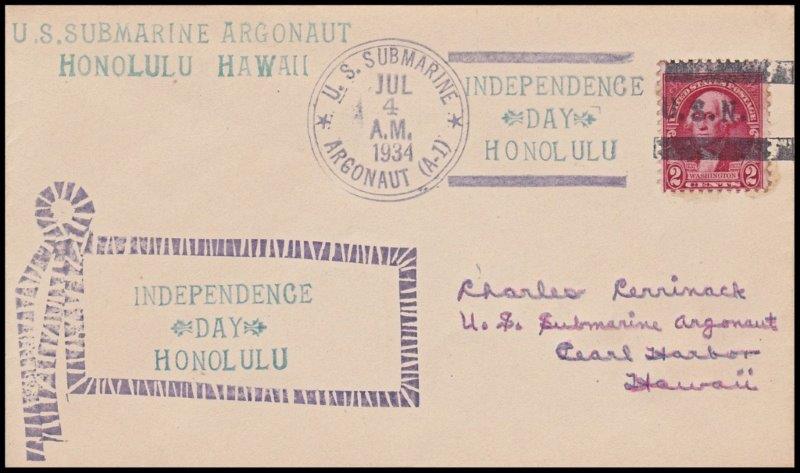 U.S. SUBMARINE ARGONAUT
HONOLULU HAWAII
U. S. SUBMARINE
JUL
4
A.M.
1934
ARGONAUT (A-1)
INDEPENDENCE
DAY
HONOLULU
UNITED STATES POSTAGE
U.S.N.
WASHINGTON
2 2
INDEPENDENCE
DAY
HONOLULU
Charles Perrinack
U. S. Submarine Argonaut
Pearl Harbor
Hawaii